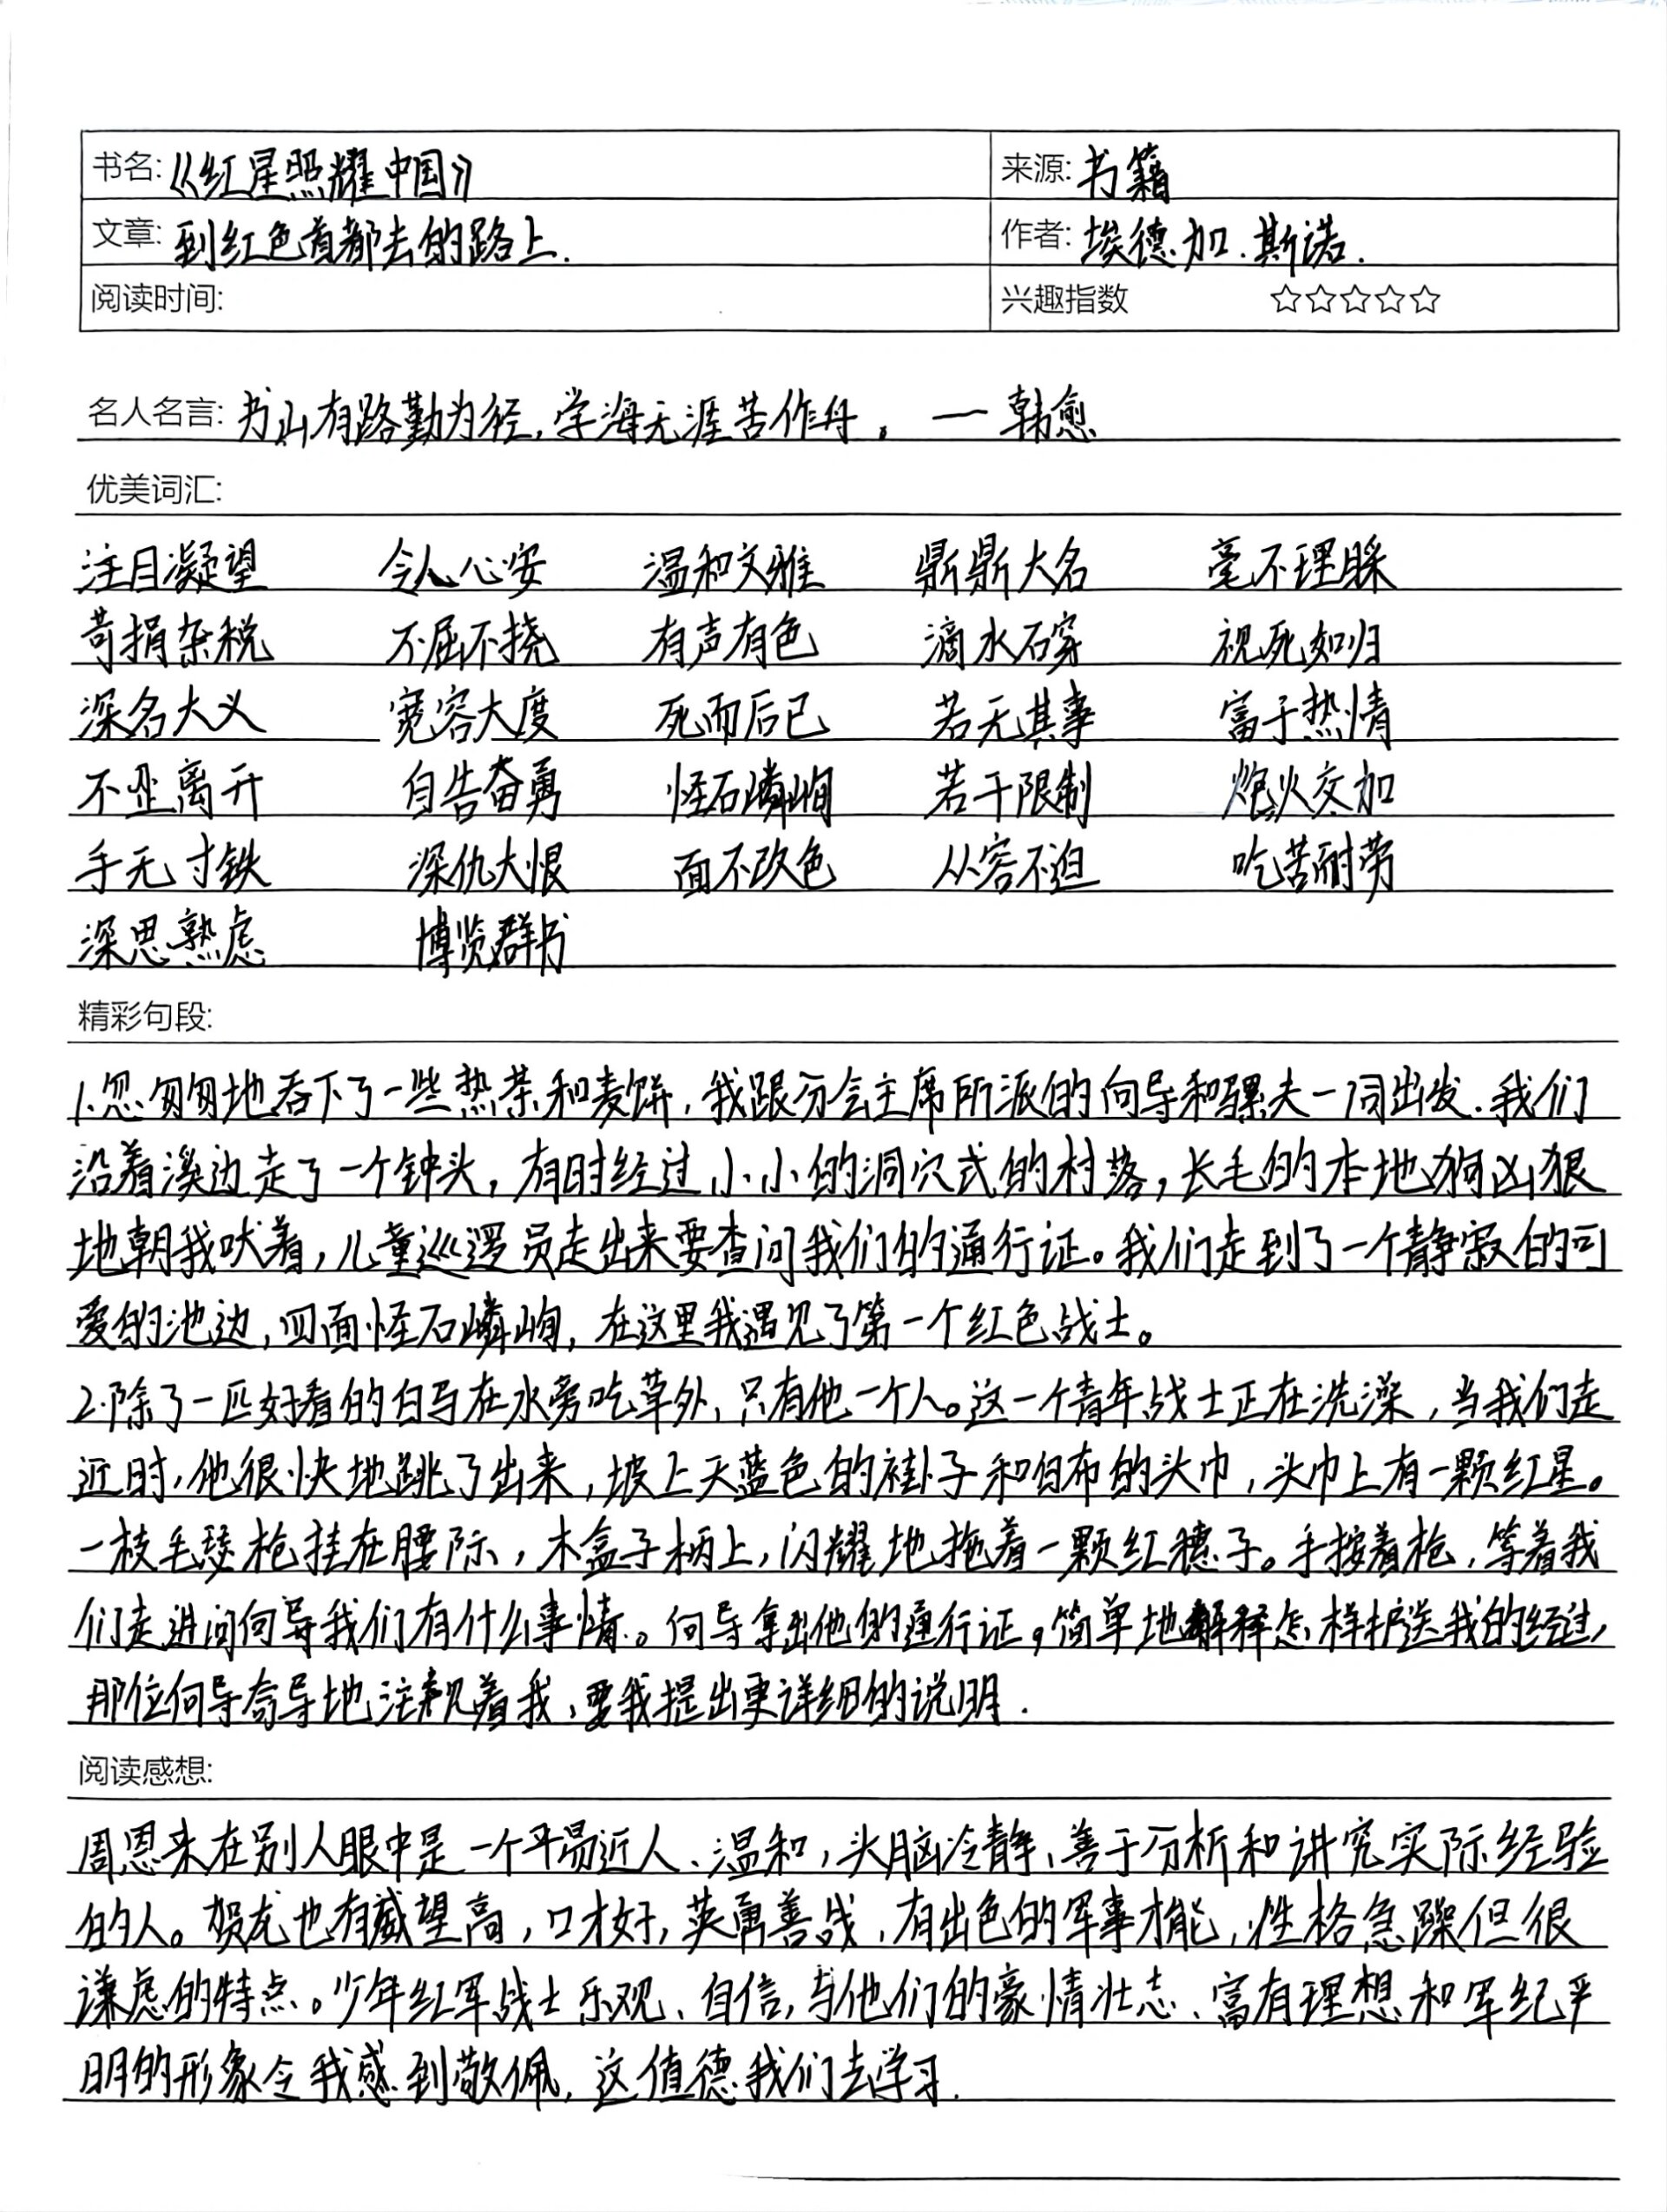 书名: 《红星照耀中国》 来源: 书籍
文章: 到红色首都去的路上. 作者: 埃德加.斯诺.
阅读时间: 兴趣指数 ☆☆☆☆☆
名人名言: 书山有路勤为径,学海无涯苦作舟。 — 韩愈
优美词汇:
注目凝望 令人心安 温和文雅 鼎鼎大名 毫不理睬
苛捐杂税 不屈不挠 有声有色 滴水石穿 视死如归
深名大义 宽容大度 死而后已 若无其事 富于热情
不止离开 自告奋勇 怪石嶙峋 若干限制 炮火交加
手无寸铁 深仇大恨 面不改色 从容不迫 吃苦耐劳
深思熟虑 博览群书
精彩句段:
1.忽匆匆地吞下了一些热茶和麦饼,我跟分会主席所派的向导和骡夫一同出发.我们
沿着溪边走了一个钟头,有时经过小小的洞穴式的村落,长毛的本地狗凶狠
地朝我吠着,儿童巡逻员走出来要查问我们的通行证。我们走到了一个静寂的可
爱的池边,四面怪石嶙峋,在这里我遇见了第一个红色战士。
2.除了一匹好看的白马在水旁吃草外,只有他一个人。这一个青年战士正在洗澡,当我们走
近时,他很快地跳了出来,坡上天蓝色的褂子和白布的头巾,头巾上有一颗红星。
一枝毛瑟枪挂在腰际,木盒子柄上,闪耀地拖着一颗红穗子。手按着枪,等着我
们走进问向导我们有什么事情。向导拿出他的通行证,简单地解释怎样护送我的经过,
那位向导奇导地注视着我,要我提出更详细的说明.
阅读感想:
周恩来在别人眼中是一个平易近人、温和,头脑冷静、善于分析和讲究实际经验
的人。贺龙也有威望高,口才好,英勇善战,有出色的军事才能,性格急躁但很
谦虑的特点。少年红军战士乐观、自信,与他们的豪情壮志、富有理想和军纪严
明的形象令我感到敬佩,这值德我们去学习.